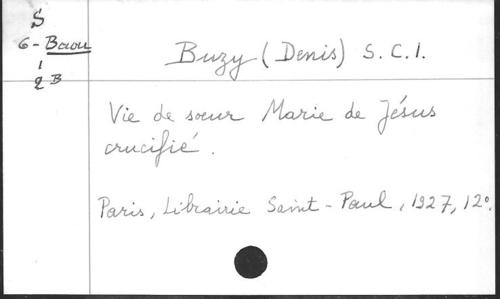 S
6-Baou
1
2B
Buzy (Denis) S.C.I.
Vie de sœur Marie de Jésus
crucifié.
Paris, Librairie Saint-Paul, 1927, 12°.